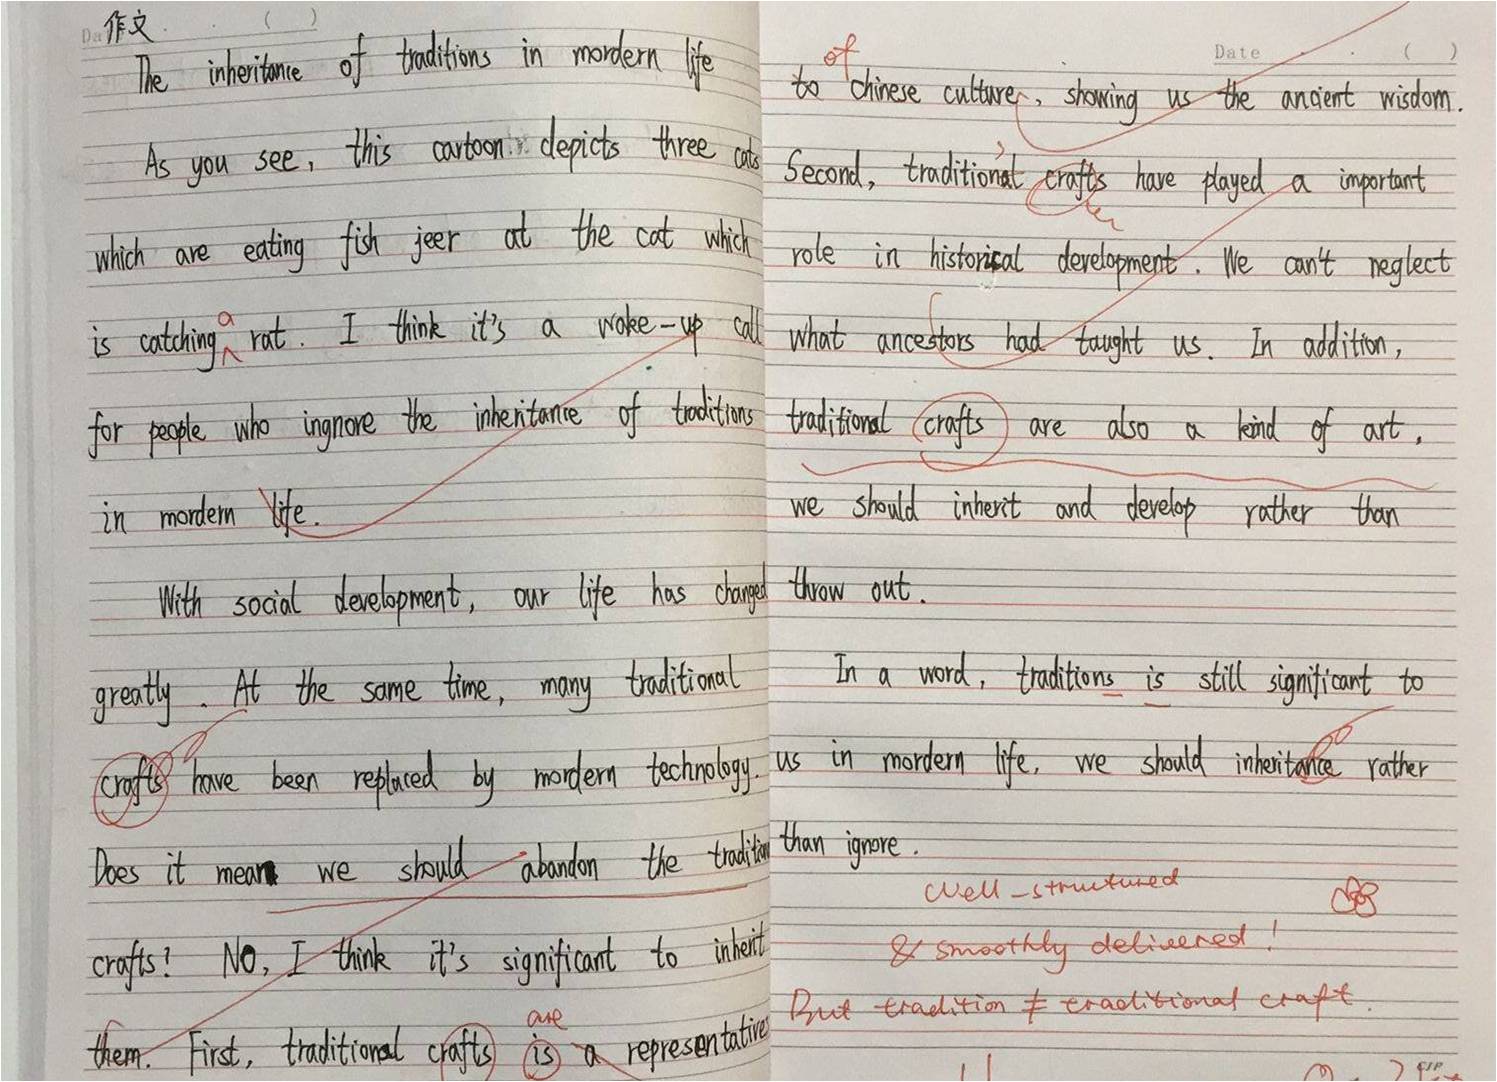 作文
The inheritance of traditions in mordern life
As you see, this cartoon depicts three cats
which are eating fish jeer at the cat which
a
is catching rat. I think it's a woke-up call
for people who ingnore the inheritance of traditions
in mordern life.
With social development, our life has changed
greatly. At the same time, many traditional
crafts have been replaced by mordern technology.
Does it mean we should abandon the tradition
crafts? No, I think it's significant to inherit
are
them. First, traditional crafts is a representative
Date ( )
of
to chinese culture, showing us the ancient wisdom.
Second, traditional crafts have played a important
role in historical development. We can't neglect
what ancestors had taught us. In addition,
traditional crafts are also a kind of art,
we should inherit and develop rather than
throw out.
In a word, traditions is still significant to
us in mordern life, we should inheritance rather
than ignore.
Well-structured
& smoothly delivered!
But tradition ≠ traditional craft.